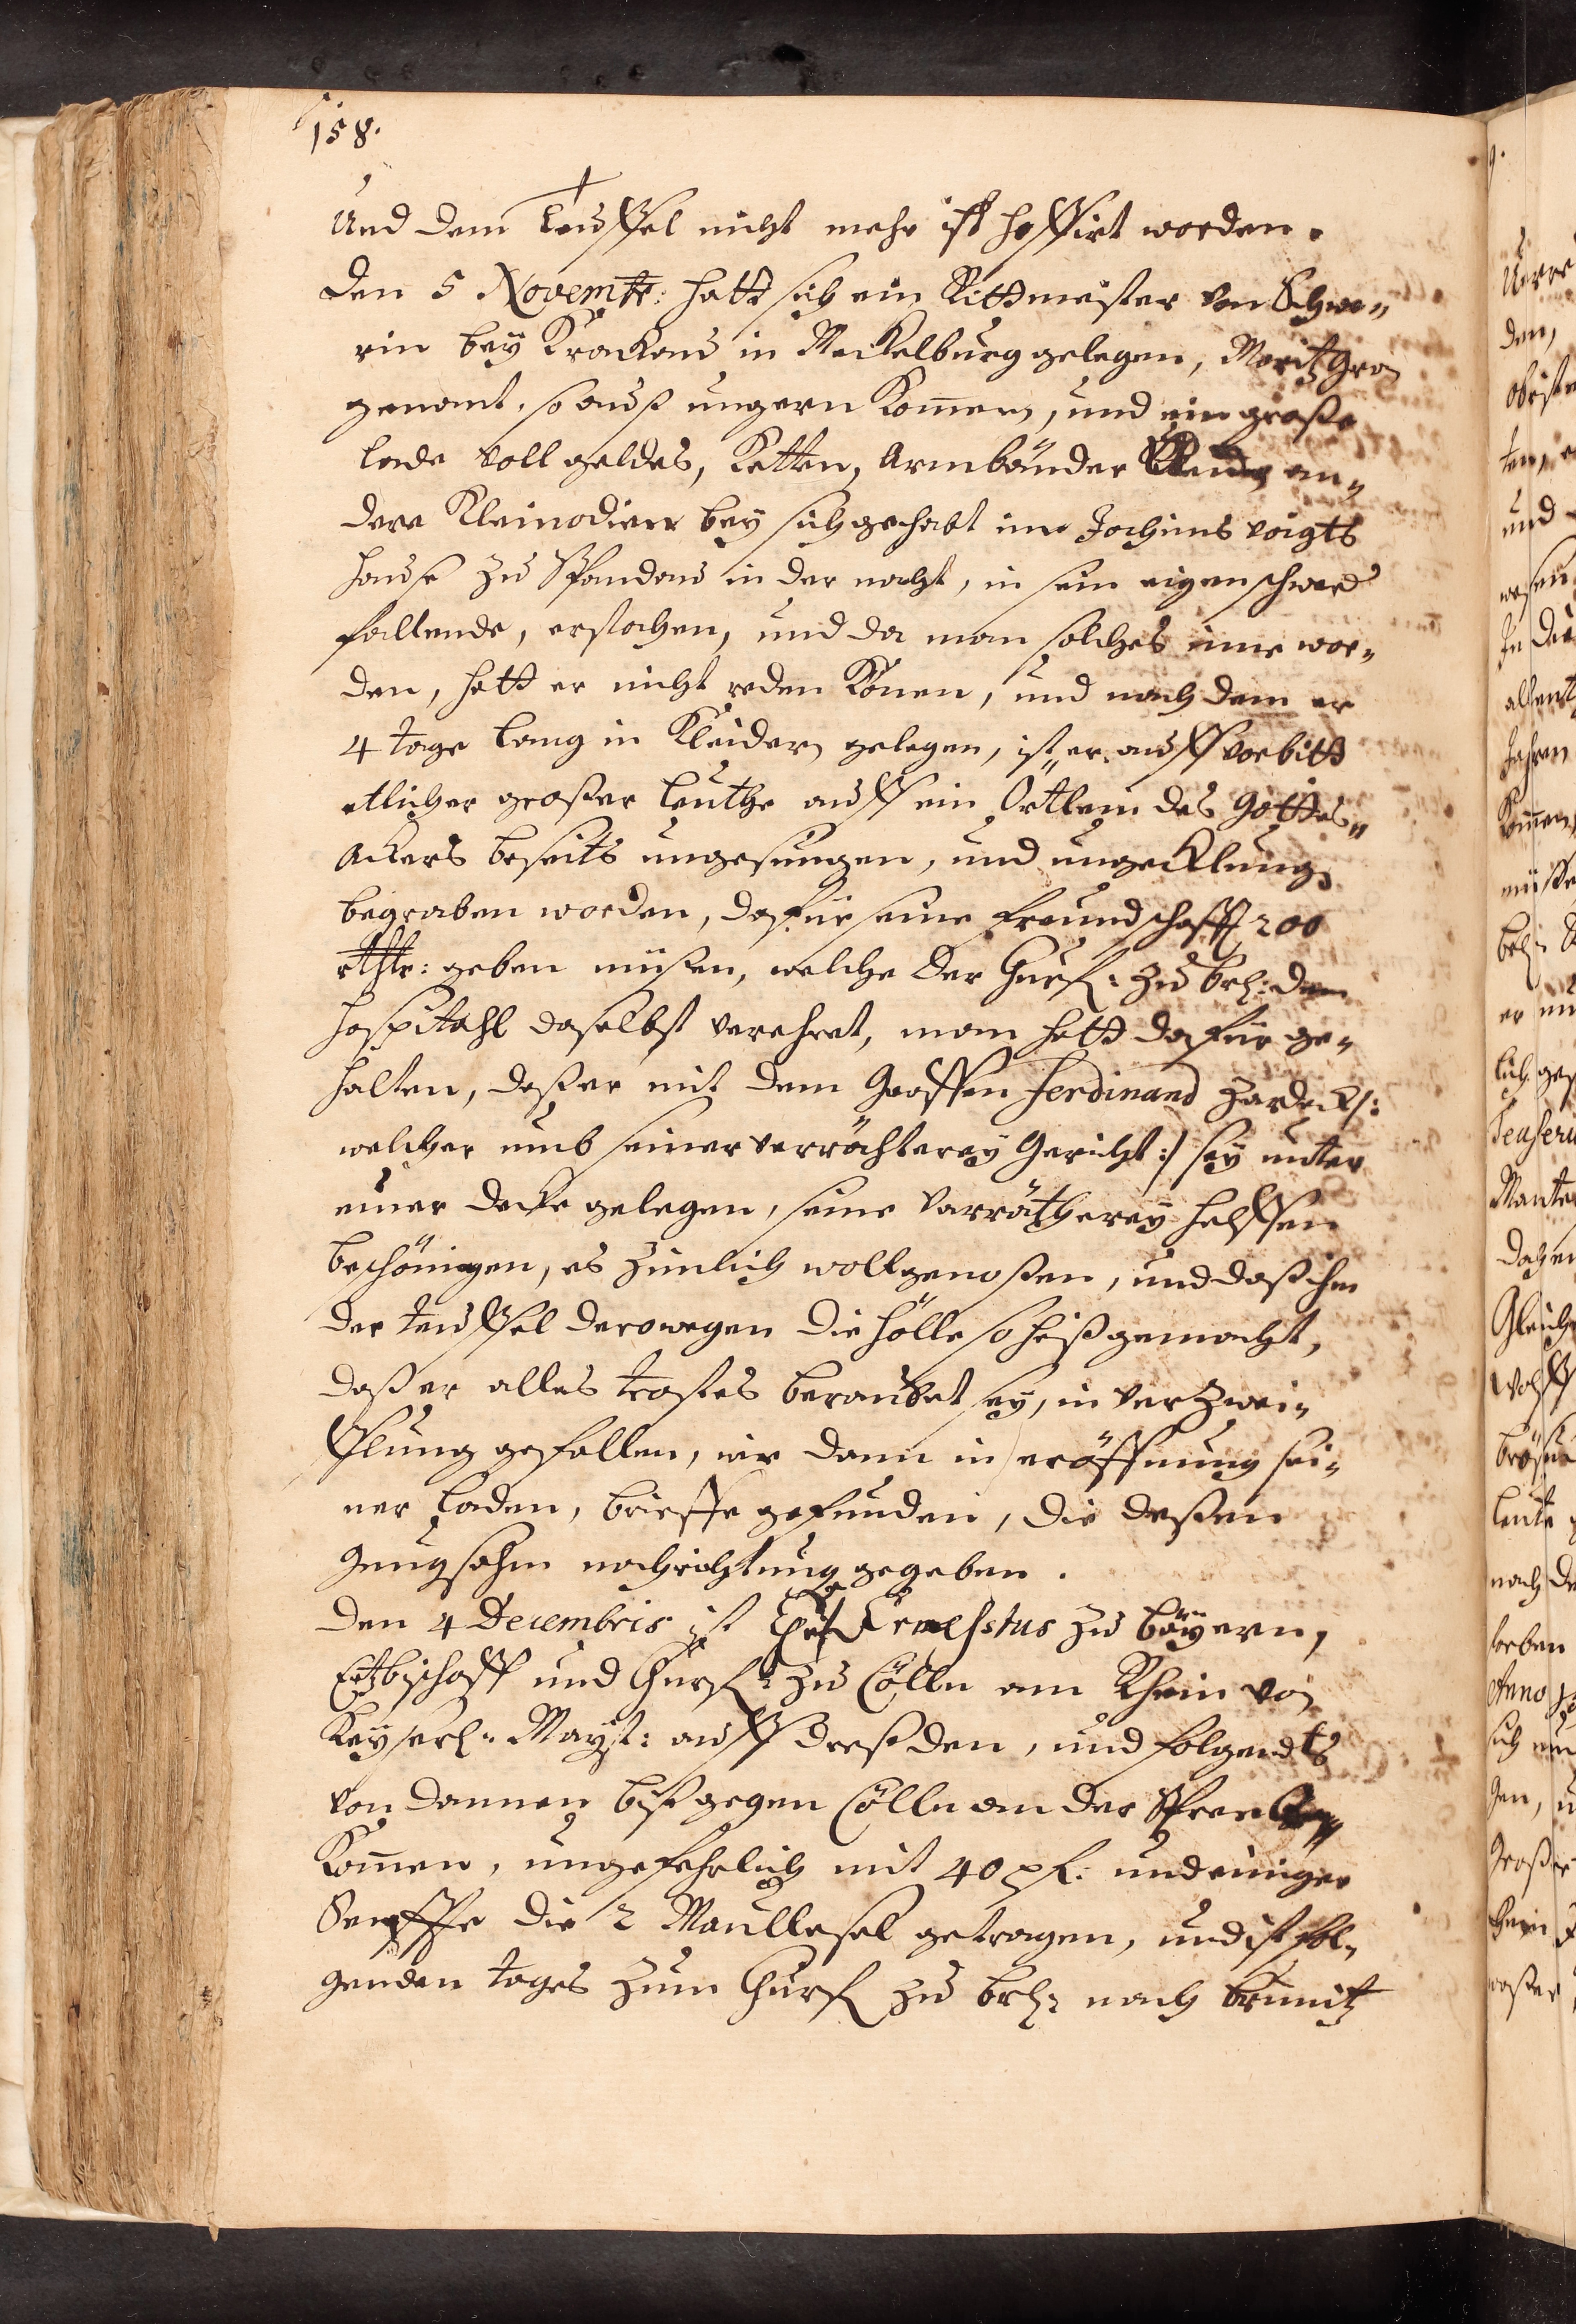 158.
Und dem Teuffel nicht mehr ist hoffirt worden.
Den 5 Novembr: hatt sich ein Rittmeister von Schwe„
rin bey Krackow in Meckelburg gelegen, Moritz Gra
genant, so auß ungern Kommen, und eine große
lade voll geldes, Ketten, Armbänder an„
dere Kleinodien bey sich gehabt inn Jochims Voigts
Hause zu Spandau in der nacht, in sein eigen schwerd
fallende, erstochen, und da man solches inne wor„
den, hatt er nicht reden Können, und nach dem er
4 tage lang in Kleidern gelegen, ist er auff vorbitt
etlicher großer Leuthe auff ein Örtlein des Gottes„
Ackers beseits ungesungen, und ungeklung
begraben worden, dafür seine freundschafft 200
rthlr: geben müßen, welche der Churf: zu Brl: dem
Hospitahl daselbst verehret, man hatt dafür ge„
halten, daß er mit dem Graffen Ferdinand Hardeck /:
welcher umb seiner verrähterey Gericht :/ sey unter
einer decke gelegen, seine Verrätherey helffen
beschönigen, es zimlich woll genoßen, und daß ihm
der teuffel derowegen die Hölle so heiß gemacht,
daß er alles trostes beraubet sey, in verzwei„
fflung gefallen, wie dann in eröffnung sei„
ner Laden, brieffe gefunden, die deßen
gnugsahm nachrichtung gegeben.
Den 4 Decembris ist Ernestus zu Bäyern,
Ertzbischoff und Churf: zu Cölln am Rhein von
Keyserl: Mayst: auff Dreßden, und folgendts
von dannen biß gegen Cölln an der Spree
Kommen, ungefehrlich mit 40 pf: und einiger
Senffte die 2 Maullesel getragen, und ist fol„
genden tages zum Churf zu Brl: nach Grimnitz